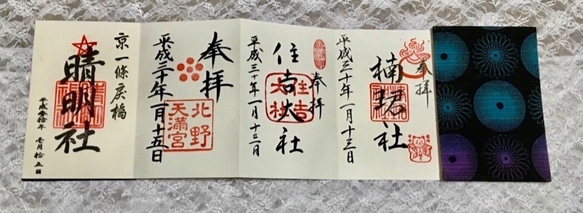 奉拝
楠珺社
平成三十年一月十三日
奉拝
住吉大社
平成三十年一月十三日
奉拝
北野
天満宮
平成三十年一月十五日
京一條戻橋
晴明社
平成三十年 壱月拾五日